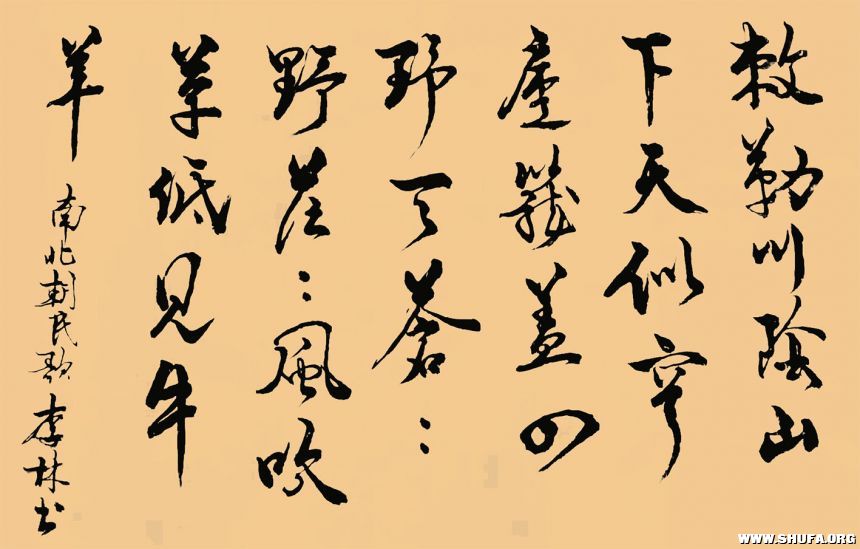 敕勒川陰山
下天似穹
廬籠蓋四
野天蒼〻
野茫〻風吹
草低見牛
羊
南北朝民歌 李林书
WWW.SHUFA.ORG